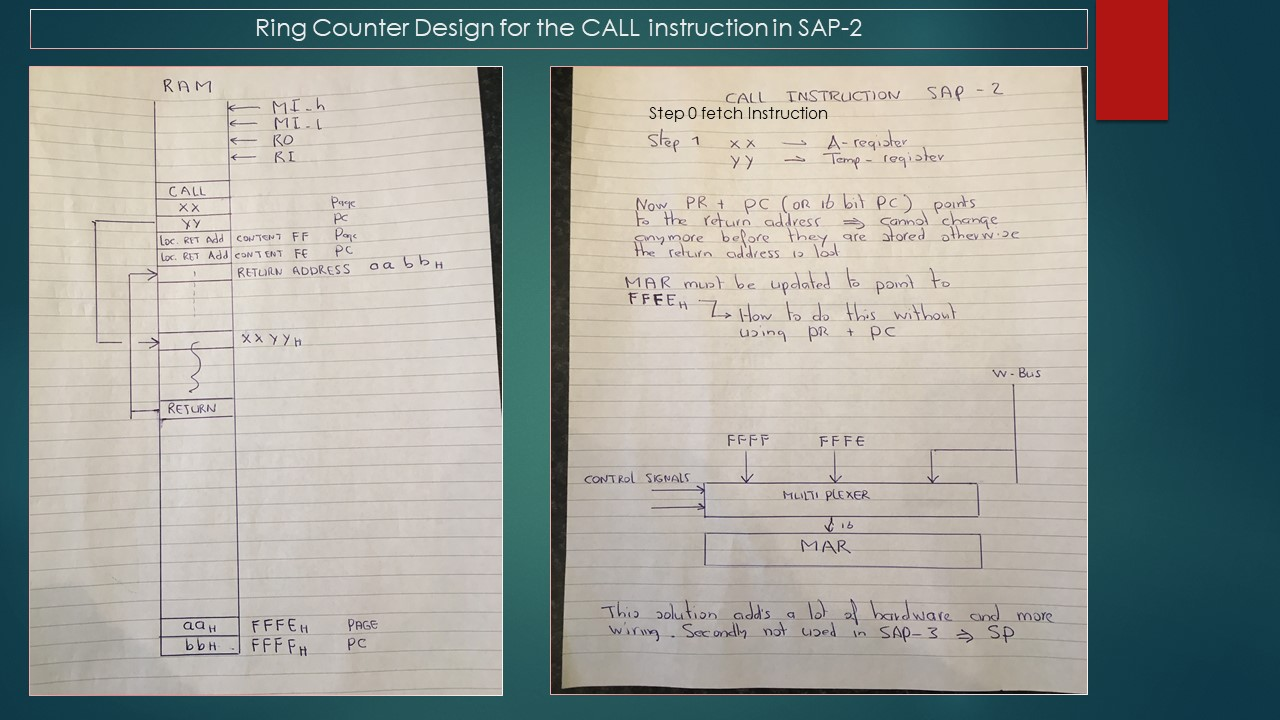 Ring Counter Design for the CALL instruction in SAP-2
RAM
MI_h
MI_L
RO
RI
CALL
XX Page
YY PC
Loc. RET Add CONTENT FF Page
Loc. RET Add CONTENT FE PC
RETURN ADDRESS aabbH
XXYYH
RETURN
aaH FFFEH PAGE
bbH FFFFH PC
CALL INSTRUCTION SAP-2
Step 0 fetch Instruction
Step 1 XX → A-register
YY → Temp-register
Now PR + PC (OR 16 bit PC) points
to the return address ⇒ cannot change
anymore before they are stored otherwise
the return address is lost
MAR must be updated to point to
FFFEH
How to do this without
using PR + PC
W-Bus
FFFF FFFE
CONTROL SIGNALS
MULTIPLEXER
16
MAR
This solution adds a lot of hardware and more
wiring. Secondly not used in SAP-3 ⇒ SP